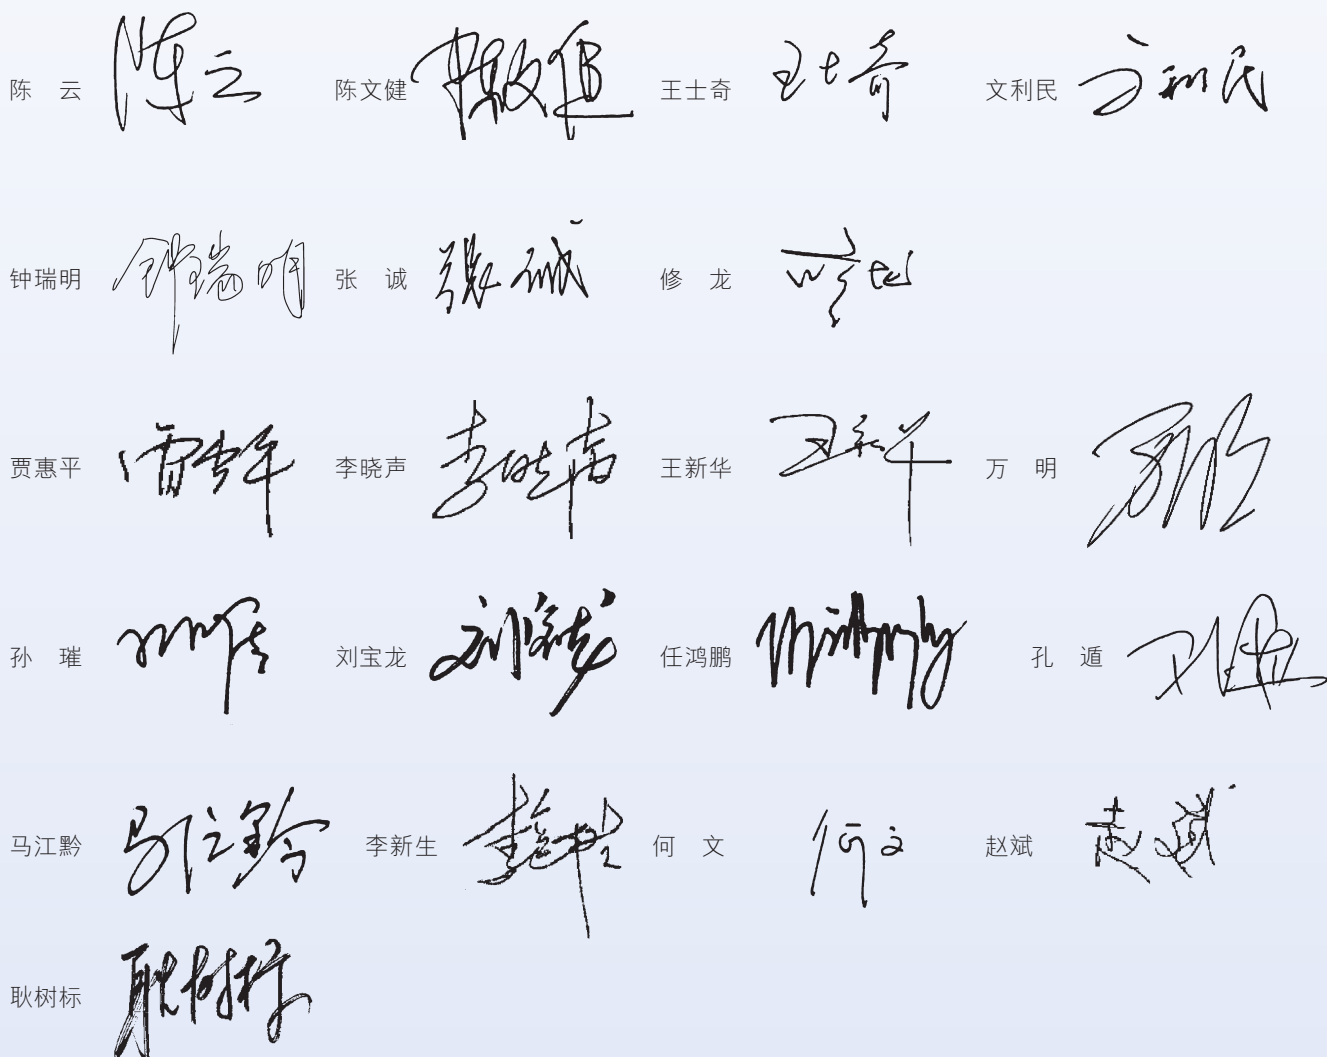 陈　云 陈云 陈文健 陈文健 王士奇 王士奇 文利民 文利民
钟瑞明 钟瑞明 张　诚 张诚 修　龙 修龙
贾惠平 贾惠平 李晓声 李晓声 王新华 王新华 万　明 万明
孙　璀 孙璀 刘宝龙 刘宝龙 任鸿鹏 任鸿鹏 孔　遁 孔遁
马江黔 马江黔 李新生 李新生 何　文 何文 赵斌 赵斌
耿树标 耿树标